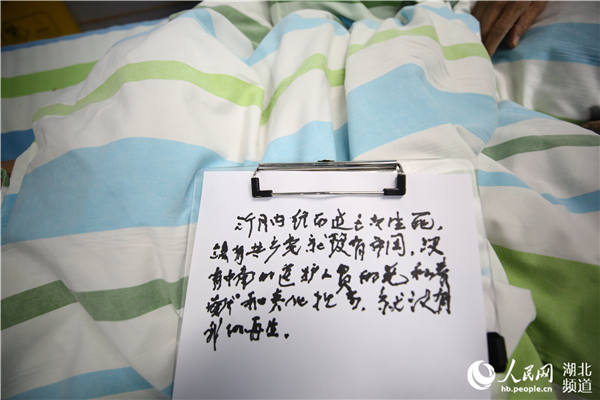 月内经历过三次生死，
没有共产党就没有中国，没
有中南的医护人员的无私奉
献和担当，就没有
我的再生。
人民网
hb.people.cn
湖北
频道